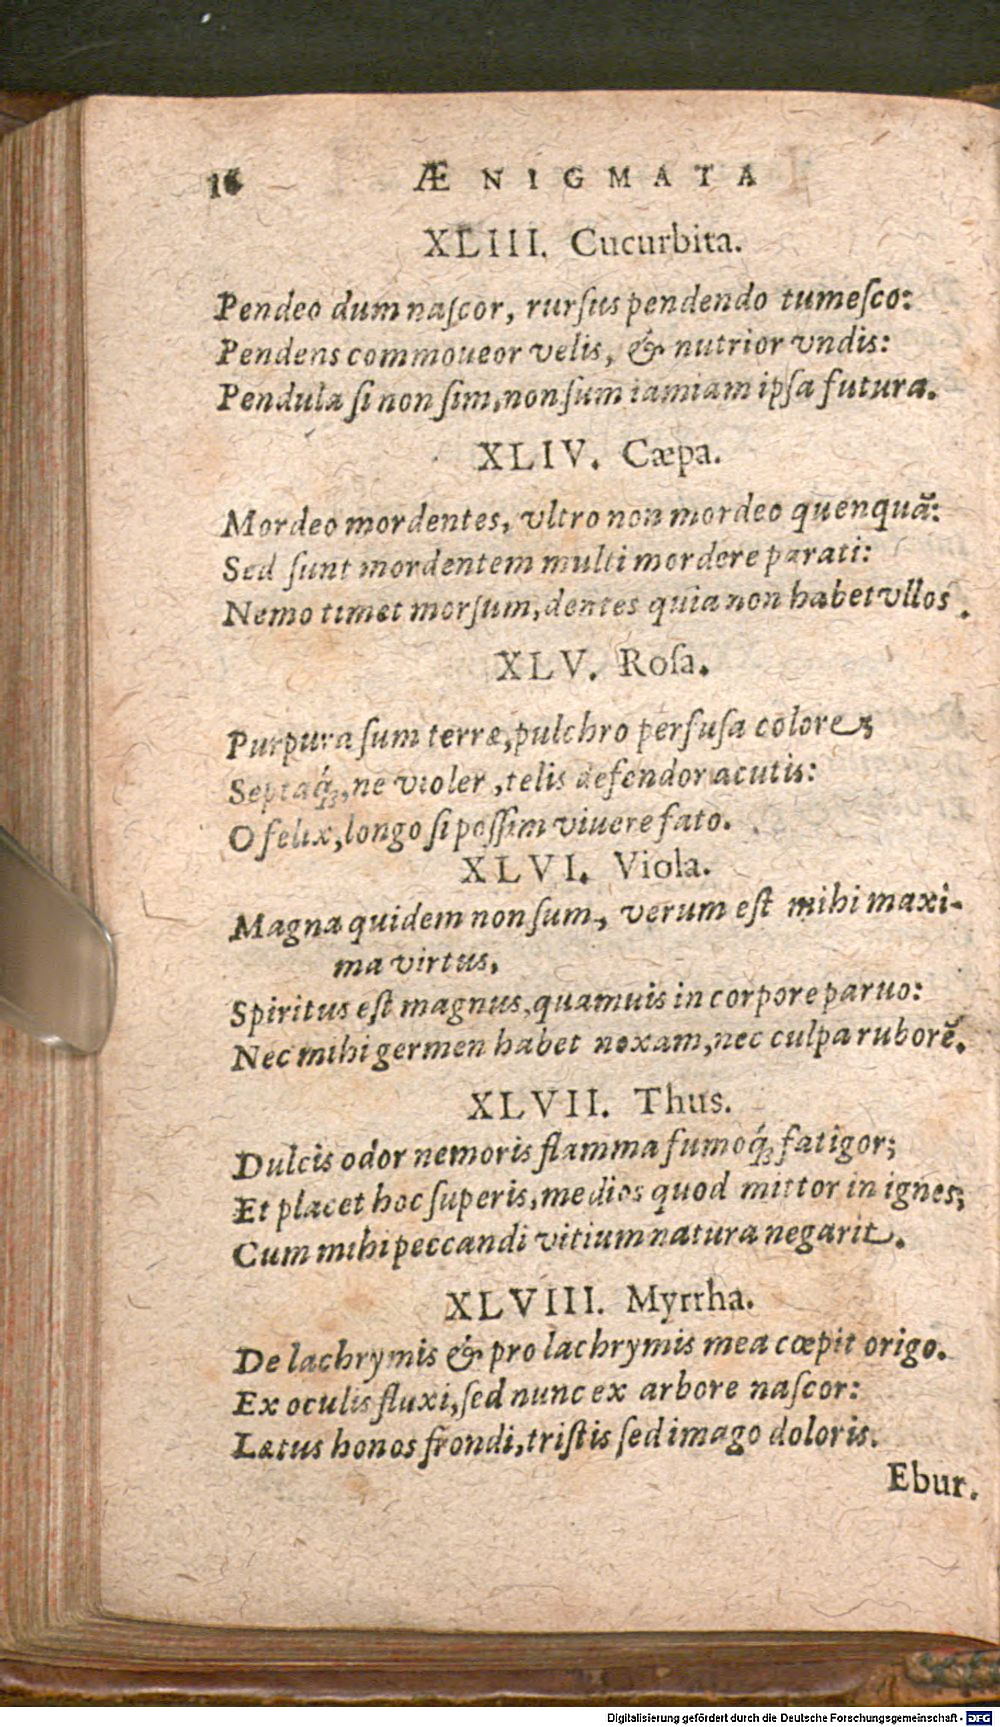 16 ÆNIGMATA
XLIII. Cucurbita.
Pendeo dum naſcor, rurſus pendendo tumeſco:
Pendens commoueor velis, & nutrior vndis:
Pendula ſi non ſim, non ſum iamiam ipſa futura.
XLIV. Cæpa.
Mordeo mordentes, vltro non mordeo quenquã:
Sed ſunt mordentem multi mordere parati:
Nemo timet morſum, dentes quia non habet vllos.
XLV. Roſa.
Purpura ſum terræ, pulchro perſuſa colore;
Septaq́;, ne violer, telis defendor acutis:
O felix, longo ſi poſſim viuere fato.
XLVI. Viola.
Magna quidem non ſum, verum eſt mihi maxi-
ma virtus,
Spiritus eſt magnus, quamuis in corpore paruo:
Nec mihi germen habet noxam, nec culpa ruborẽ.
XLVII. Thus.
Dulcis odor nemoris flamma fumoq́; fatigor;
Et placet hoc ſuperis, medios quod mittor in ignes;
Cum mihi peccandi vitium natura negarit.
XLVIII. Myrrha.
De lachrymis & pro lachrymis mea cœpit origo.
Ex oculis fluxi, ſed nunc ex arbore naſcor:
Lætus honos frondi, triſtis ſed imago doloris.
Ebur.
Digitalisierung gefördert durch die Deutsche Forschungsgemeinschaft - DFG